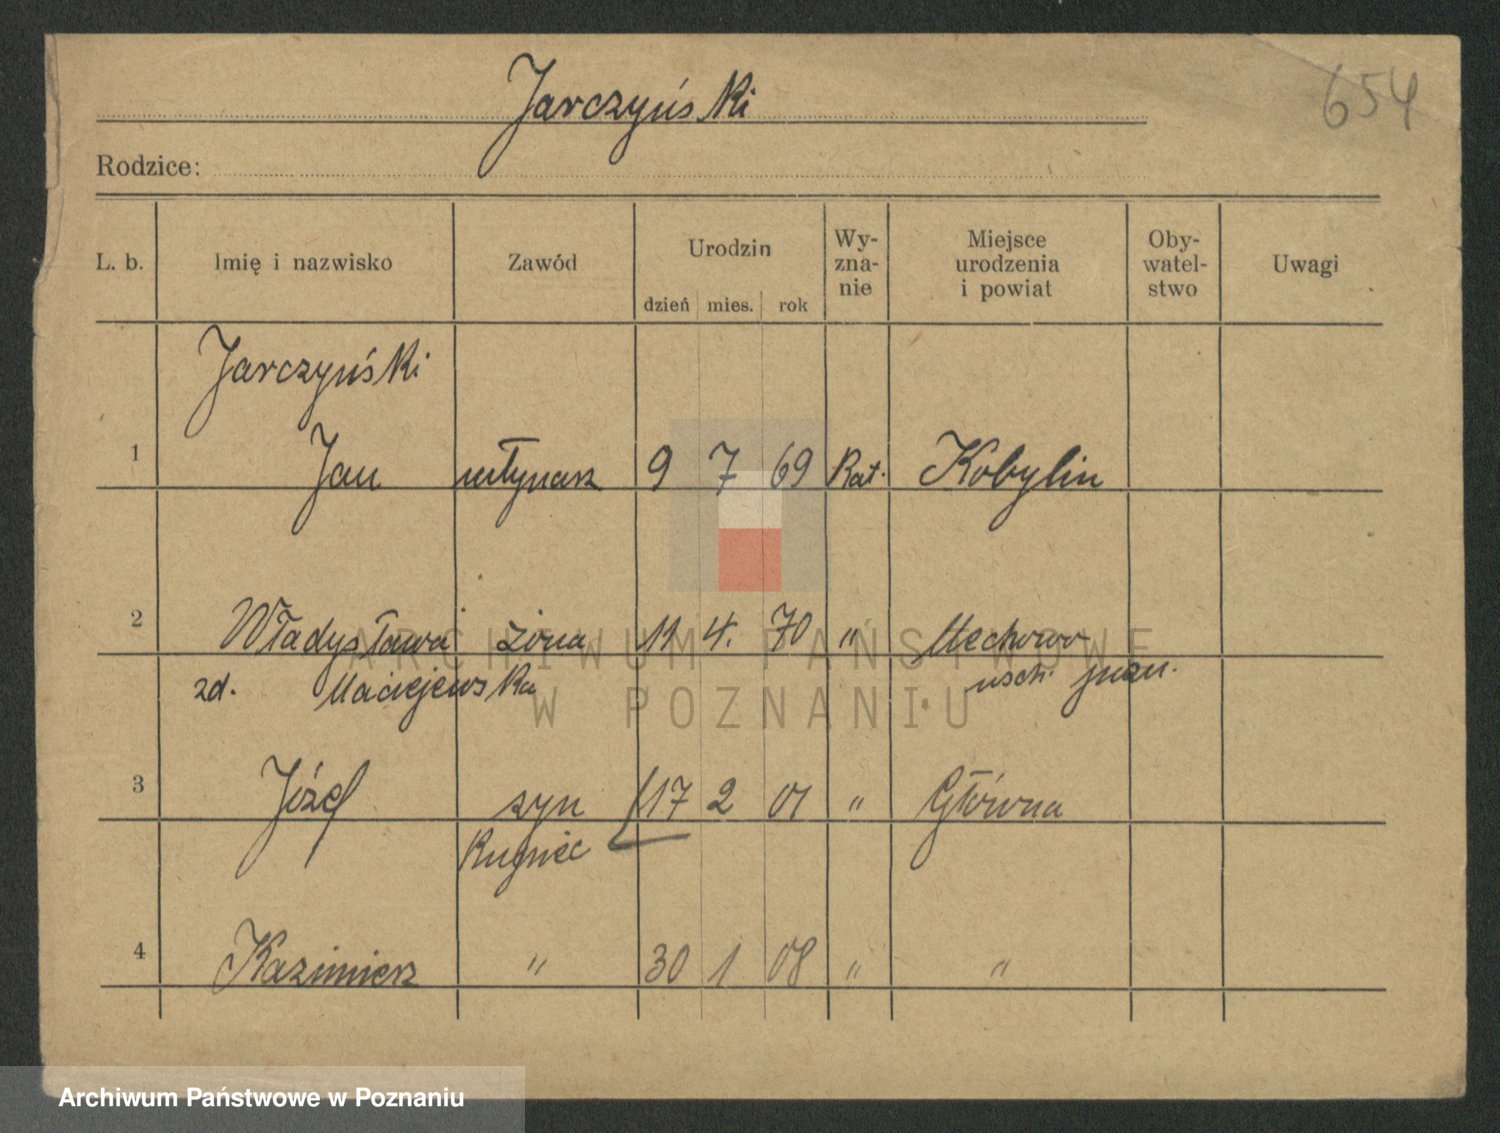 Jarczyński
654
Rodzice:
L. b. Imię i nazwisko Zawód Urodzin dzień mies. rok Wy-zna-nie Miejsce urodzenia i powiat Oby-watel-stwo Uwagi
Jarczyński
1 Jan młynarz 9 7 69 Kat. Kobylin
2 Władysława żona 11 4. 70 " Mechowo
zd. Maciejewska wsch.
3 Józef syn 17 2 01 " Główna
Kupiec
4 Kazimierz " 30 1 08 " "
ARCHIWUM PAŃSTWOWE
W POZNANIU
Archiwum Państwowe w Poznaniu